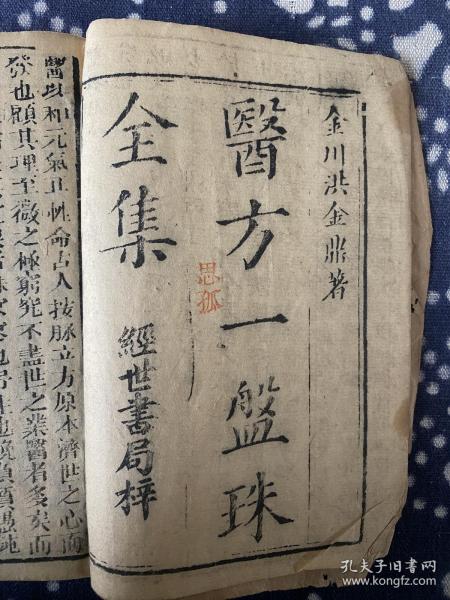 金川洪金鼎著
醫方一盤珠
全集
經世書局梓
思孤
醫以和元氣且性命古人按脉立方原本濟世之心而
發也顧其理至微之極窮究不盡世之業醫者多矣而
孔夫子旧书网
www.kongfz.com